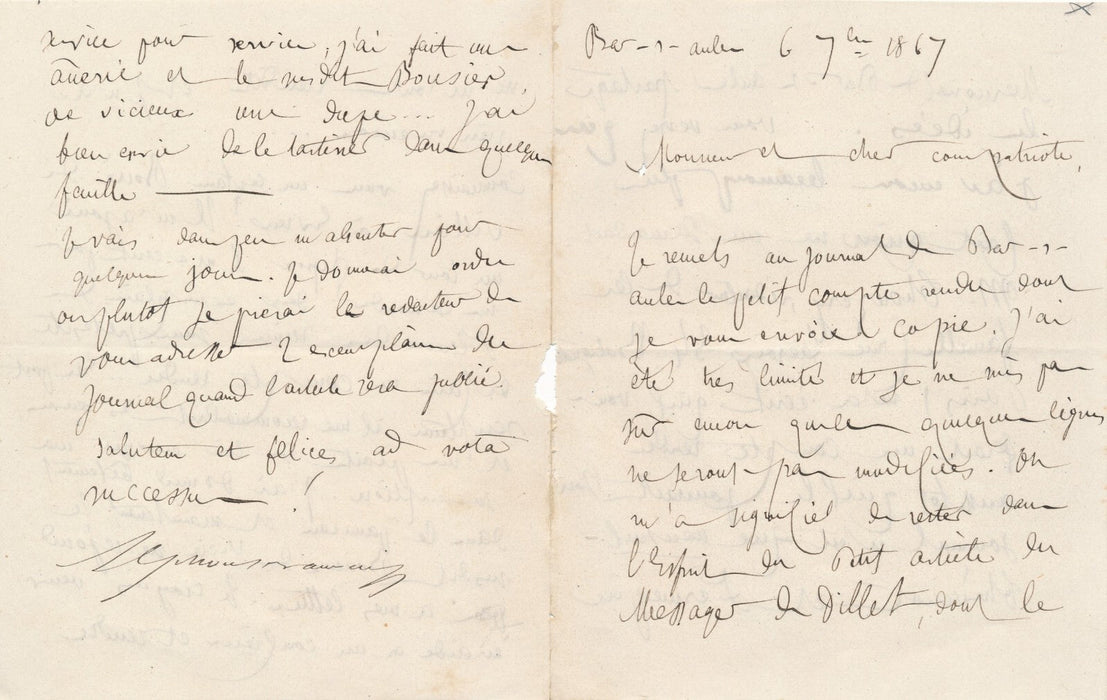 Bar-s-aube 6 7bre 1867
Monsieur et cher compatriote,
Je remets au journal de Bar-s-
aube le petit compte rendu dont
je vous envoie copie. J'ai
été très limité et je ne suis pas
sûr encor que les quelques lignes
ne seront pas modifiées. On
m'a signifié de rester dans
l'Esprit du Petit article du
Messager de Dillet, dont le
service pour service, j'ai fait une
ânerie et le susdit Bousier,
de vicieux une dupe... J'ai
bien envie de le tartiner dans quelque
feuille
Je vais dans peu m'absenter pour
quelques jours. Je donnerai ordre
ou plutot je prierai le rédacteur de
vous adresser 2 exemplaires du
Journal quand l'article sera publié.
salutem et felices ad vota
successus !